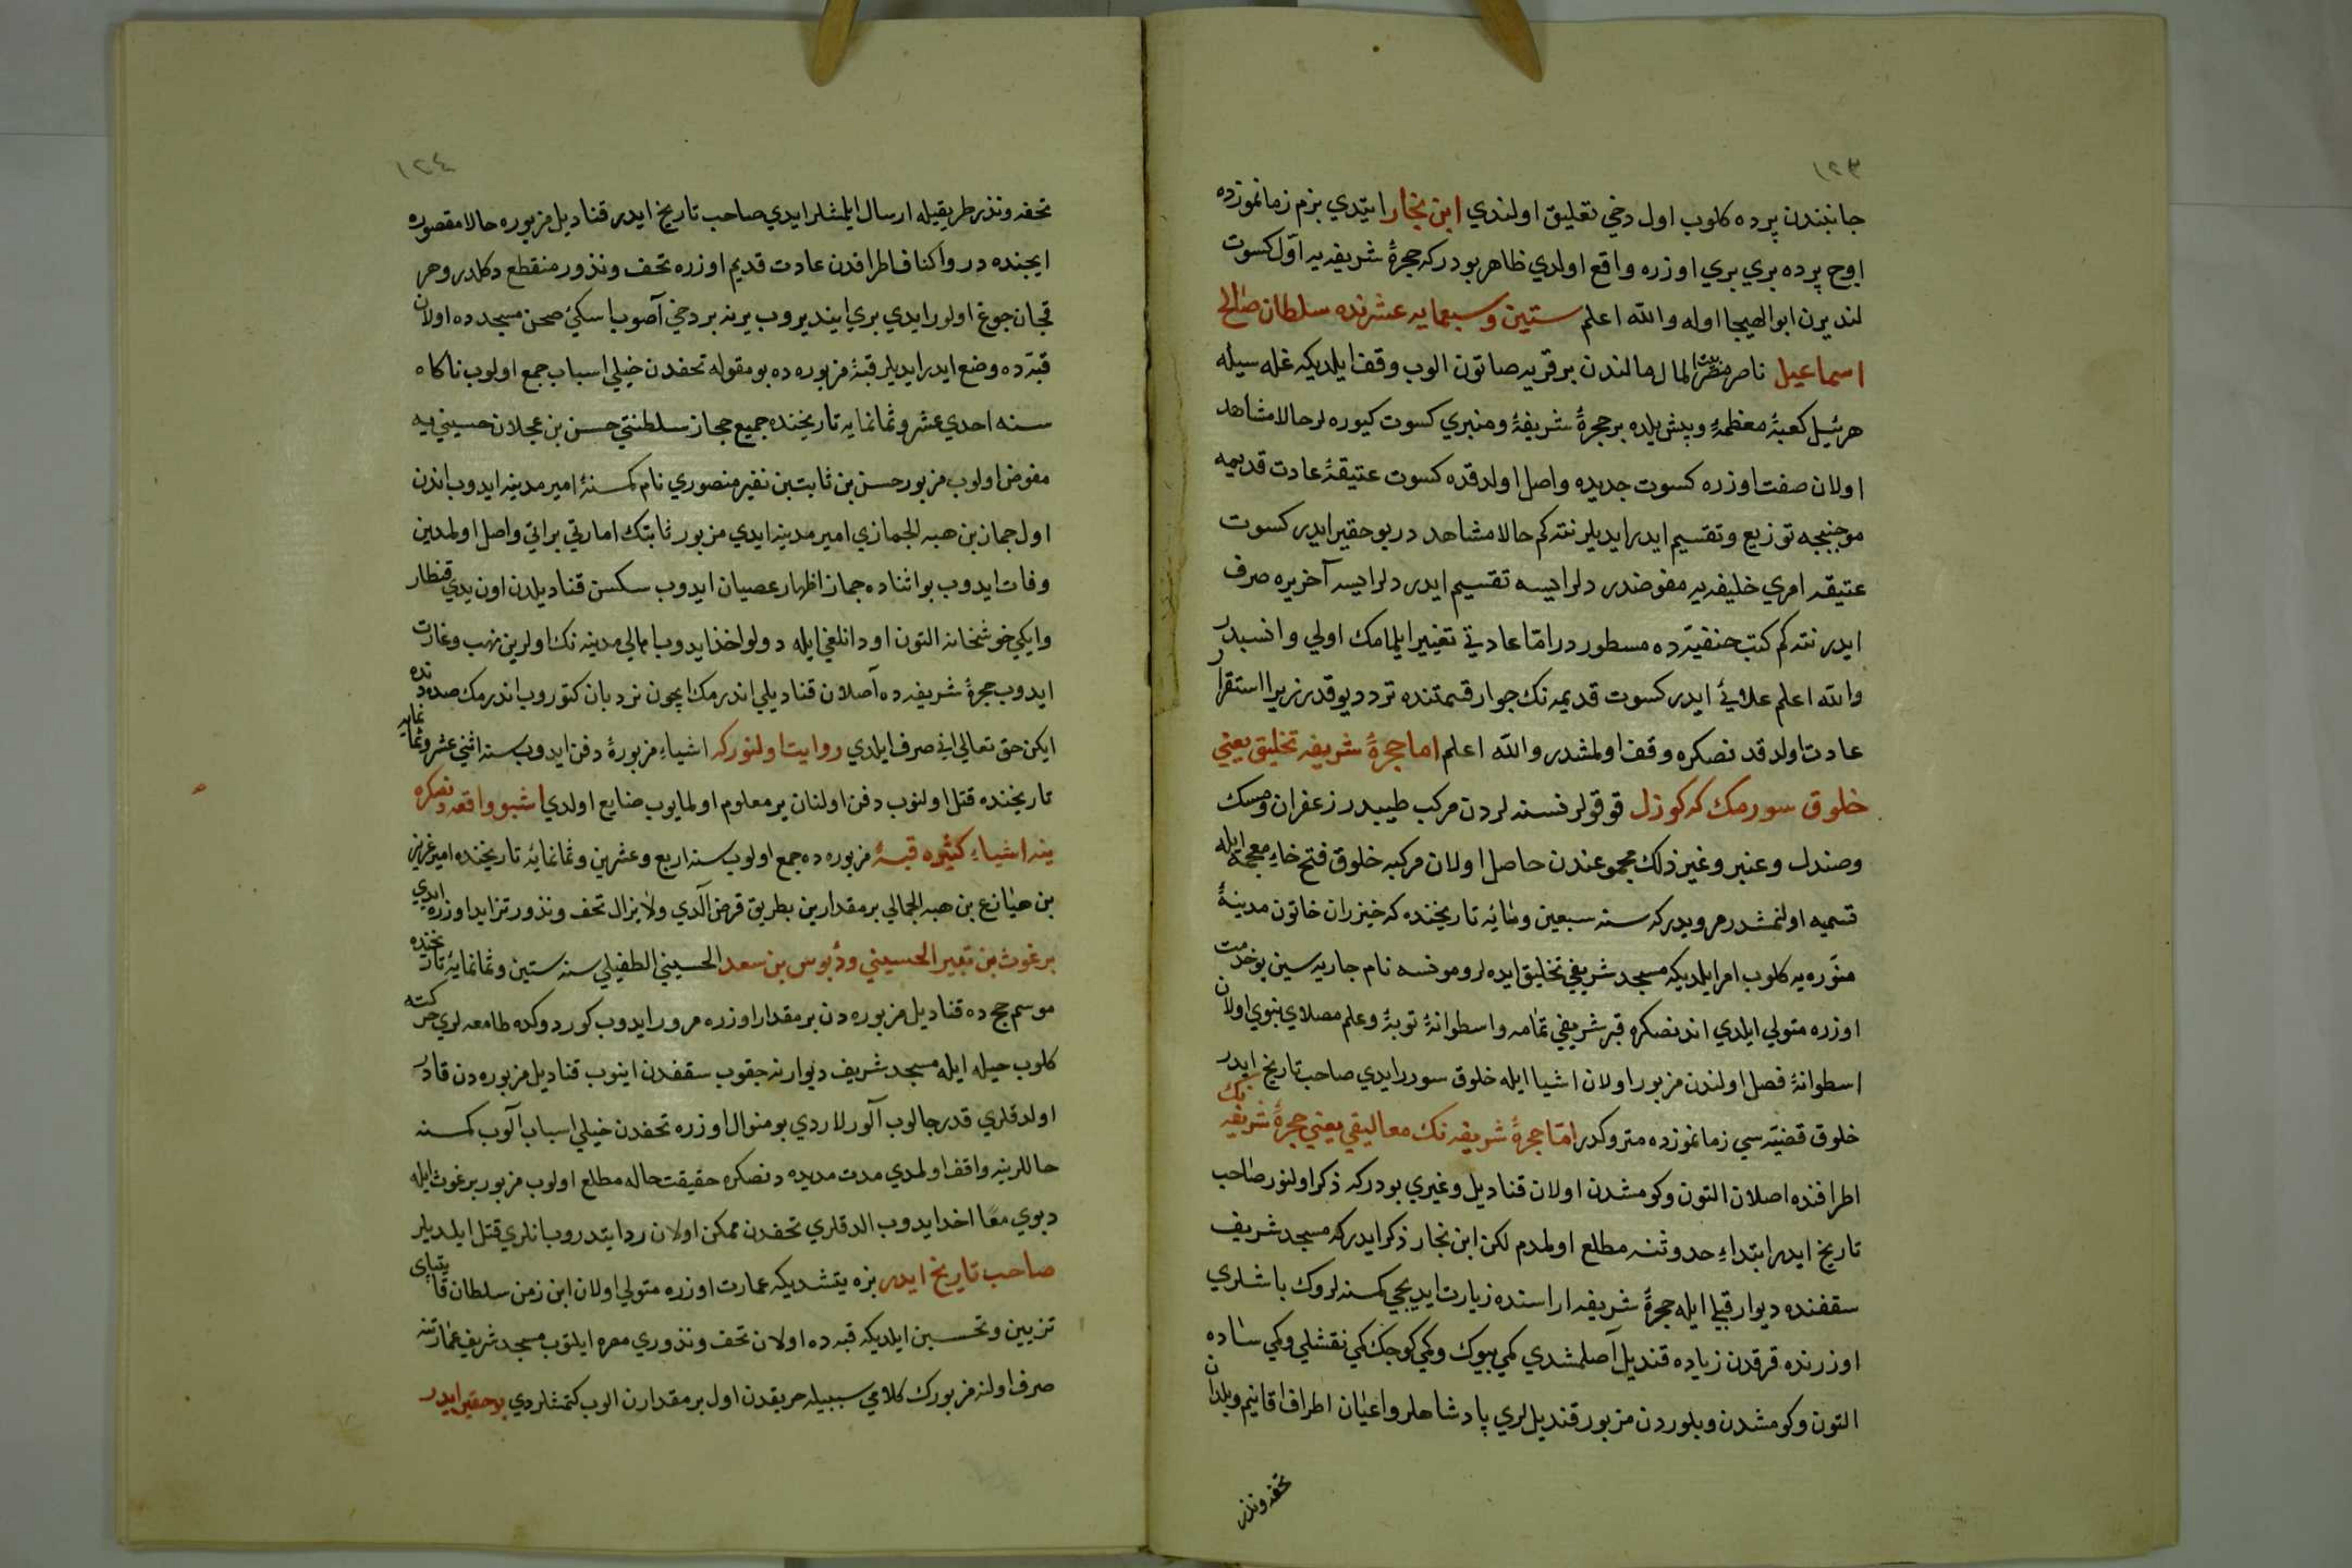 ١٢٣
جانبندن پرده كلوب اول دخي تعليق اولندي ابن نجار ايتدي بزم زمانموزده
اوچ پرده بري بري اوزره واقع اولدي ظاهر بودركه حجرهٔ شريفه يه اوّل كسوت
لنديرن ابو الهيجا اوله والله اعلم ستين وسبعمايه عشرنده سلطان صالح
اسماعيل ناصر بيت المال مالندن بر قريه صاتون الوب وقف ايلديكه غله سيله
هر ييل كعبهٔ معظمهٔ وبش يلده بر حجرهٔ شريفهٔ ومنبري كسوت كيوره لر حالا مشاهد
اولان صفت اوزره كسوت جديده واصل اولدقده كسوت عتيقهٔ عادت قديمه
موجبنجه توزيع وتقسيم ايدر ايديلر نته كم حالا مشاهد در بو حقير ايدر كسوت
عتيقه امري خليفه يه مفوضدر دلرايسه تقسيم ايدر دلرايسه آخر يره صرف
ايدر نته كم كتب حنفيّه ده مسطوردر امّا عادتي تغيير ايلمامك اولي وانسبدر
والله اعلم علائي ايدر كسوت قديمه نك جوار قسمتنده ترددم يوقدر زيرا استقرار
عادت اولدقد نصكره وقف اولمشدر والله اعلم اما حجرهٔ شريفه تخليق يعني
خلوق سورمك كه كوزل قوقولر نسنه لردن مركب طيبدر زعفران ومسك
وصندل وعنبر وغير ذلك مجموعندن حاصل اولان مركبه خلوق فتح خاءِ معجمه ايله
تسميه اولنمشدر مرويدركه سنه سبعين ومائه تاريخنده كه خيزران خاتون مدينهٔ
منوّره يه كلوب امر ايلديكه مسجد شريفي تخليق ايده لر ومونسه نام جاريه سين بو خدمت
اوزره متولي ايلدي اندنصكره قبر شريفي تمامه واسطوانهٔ توبهٔ وعلم مصلاي نبوي اولان
اسطوانهٔ فصل اولندن مزبور اولان اشيا ايله خلوق سوررايدي صاحب تاريخ ايدر
خلوق قضيّه سي زمانموزده متروكدر امّا حجرهٔ شريفه نك معاليقي يعني حجرهٔ شريفه نك
اطرافنده اصلان التون وكومشدن اولان قناديل وغيري بودركه ذكر اولنور صاحب
تاريخ ايدر ابتداءِ حدوثنه مطلع اولمدم لكن ابن نجار ذكر ايدركه مسجد شريف
سقفنده ديوار قبلي ايله حجرهٔ شريفه اراسنده زيارت ايديجي كمسنه لروك باشلري
اوزرنده قرقدن زياده قنديل آصلمشدي كمي بيوك وكمي كوچك كمي نقشلي وكمي ساده
التون وكومشدن وبلوردن مزبور قنديللري پادشاهلر واعيان اطراف اقاليم وبلدان
تحفه ونذر
١٢٤
تحفه ونذر طريقيله ارسال ايلمشلر ايدي صاحب تاريخ ايدر قناديل مزبوره حالا مقصوره
ايجنده در واكناف اطرافدن عادت قديم اوزره تحف ونذور منقطع دكلدر وهر
قچان جوغ اولور ايدي بري اينديروب يرنه بر دخي آصوب اسكئ صحن مسجدده اولان
قبّه ده وضع ايدر ايديلر قبهٔ مزبوره ده بو مقوله تحفدن خيلي اسباب جمع اولوب ناكاه
سنه احدي عشر وثمانمايه تاريخنده جميع حجاز سلطنتي حسن بن عجلان حسيني يه
مفوض اولوب مزبور حسن بن ثابت بن نفير منصوري نام كمسنهٔ امير مدينه ايدوب اندن
اول جماز بن هبه الجمازي امير مدينه ايدي مزبور ثابتك امارتي براتي واصل اولمدين
وفات ايدوب بو اثناده جماز اظهار عصيان ايدوب سكسن قناديلدن اون يدي قنطار
وايكي خوشخانه التون اودانلغي ايله دولو اخذ ايدوب اهالي مدينه نك اولرين نهب وغارت
ايدوب حجرهٔ شريفه ده آصلان قناديلي اندرمك ايچون نردبان كتوروب اندرمك صددنده
ايكن حق تعالي اني صرف ايلدي روايت اولنوركه اشياءِ مزبورهٔ دفن ايدوب سنه اثني عشر وثمانمايه
تاريخنده قتل اولنوب دفن اولنان ير معلوم اولمايوب ضايع اولدي اشبو واقعه دنصكره
ينه اشياءِ كثيره قبهٔ مزبوره ده جمع اولوب سنه اربع وعشرين وثمانمايهٔ تاريخنده امير عزيز
بن هيازع بن هبه الجمالي بر مقدارين بطريق قرض آلدي ولايزال تحف ونذور تزايد اوزره ايدي
برغوث بن تبير الحسيني ودبوس بن سعد الحسيني الطفيلي سنه ستين وثمانمايهٔ تاريخنده
موسم حج ده قناديل مزبوره دن بر مقدار اوزره مرور ايدوب كوردوكده طامعه لري حركته
كلوب حيله ايله مسجد شريف ديوارنه چقوب سقفدن اينوب قناديل مزبوره دن قادر
اولدقلري قدر چالوب آلورلاردي بو منوال اوزره تحفدن خيلي اسباب آلوب كمسنه
حاللرينه واقف اولمدي مدت مديده دنصكره حقيقت حاله مطلع اولوب مزبور برغوث ايله
دبوسي معًا اخذ ايدوب الدقلري تحفدن ممكن اولان رد ايتدروب انلري قتل ايلديلر
صاحب تاريخ ايدر بزه يتشديكه عمارت اوزره متولي اولان ابن زمن سلطان قايتباي
تزيين وتحسين ايلديكه قبه ده اولان تحف ونذوري مصره ايلتوب مسجد شريف عمارتنه
صرف اولنه مزبورك كلامي سببيله حريقدن اول بر مقدارن الوب كتمشلردي بو حقير ايدر